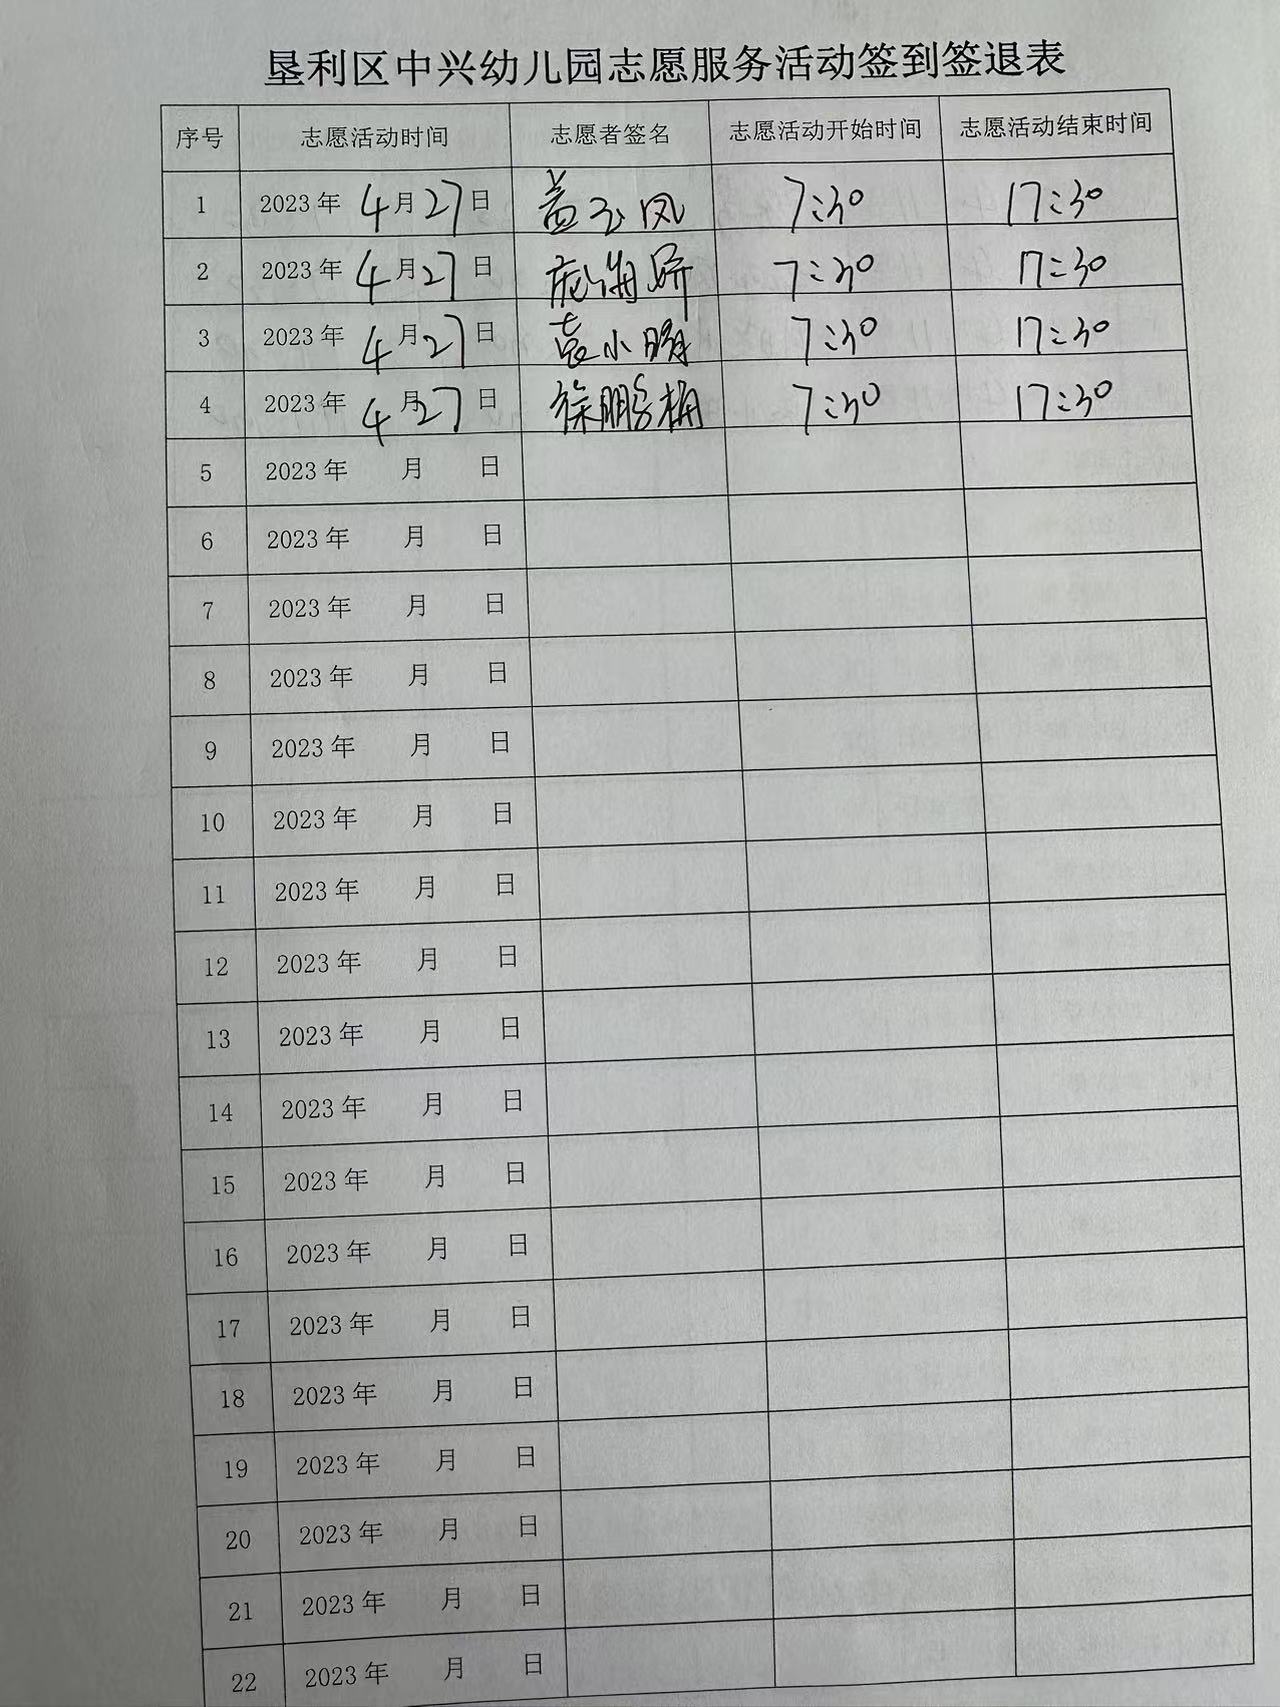 垦利区中兴幼儿园志愿服务活动签到签退表
序号 志愿活动时间 志愿者签名 志愿活动开始时间 志愿活动结束时间
1 2023年 4月27日 盖玉凤 7:30 17:30
2 2023年 4月27日 7:30 17:30
3 2023年 4月27日 袁小 7:30 17:30
4 2023年 4月27日 徐鹏 7:30 17:30
5 2023年 月 日
6 2023年 月 日
7 2023年 月 日
8 2023年 月 日
9 2023年 月 日
10 2023年 月 日
11 2023年 月 日
12 2023年 月 日
13 2023年 月 日
14 2023年 月 日
15 2023年 月 日
16 2023年 月 日
17 2023年 月 日
18 2023年 月 日
19 2023年 月 日
20 2023年 月 日
21 2023年 月 日
22 2023年 月 日